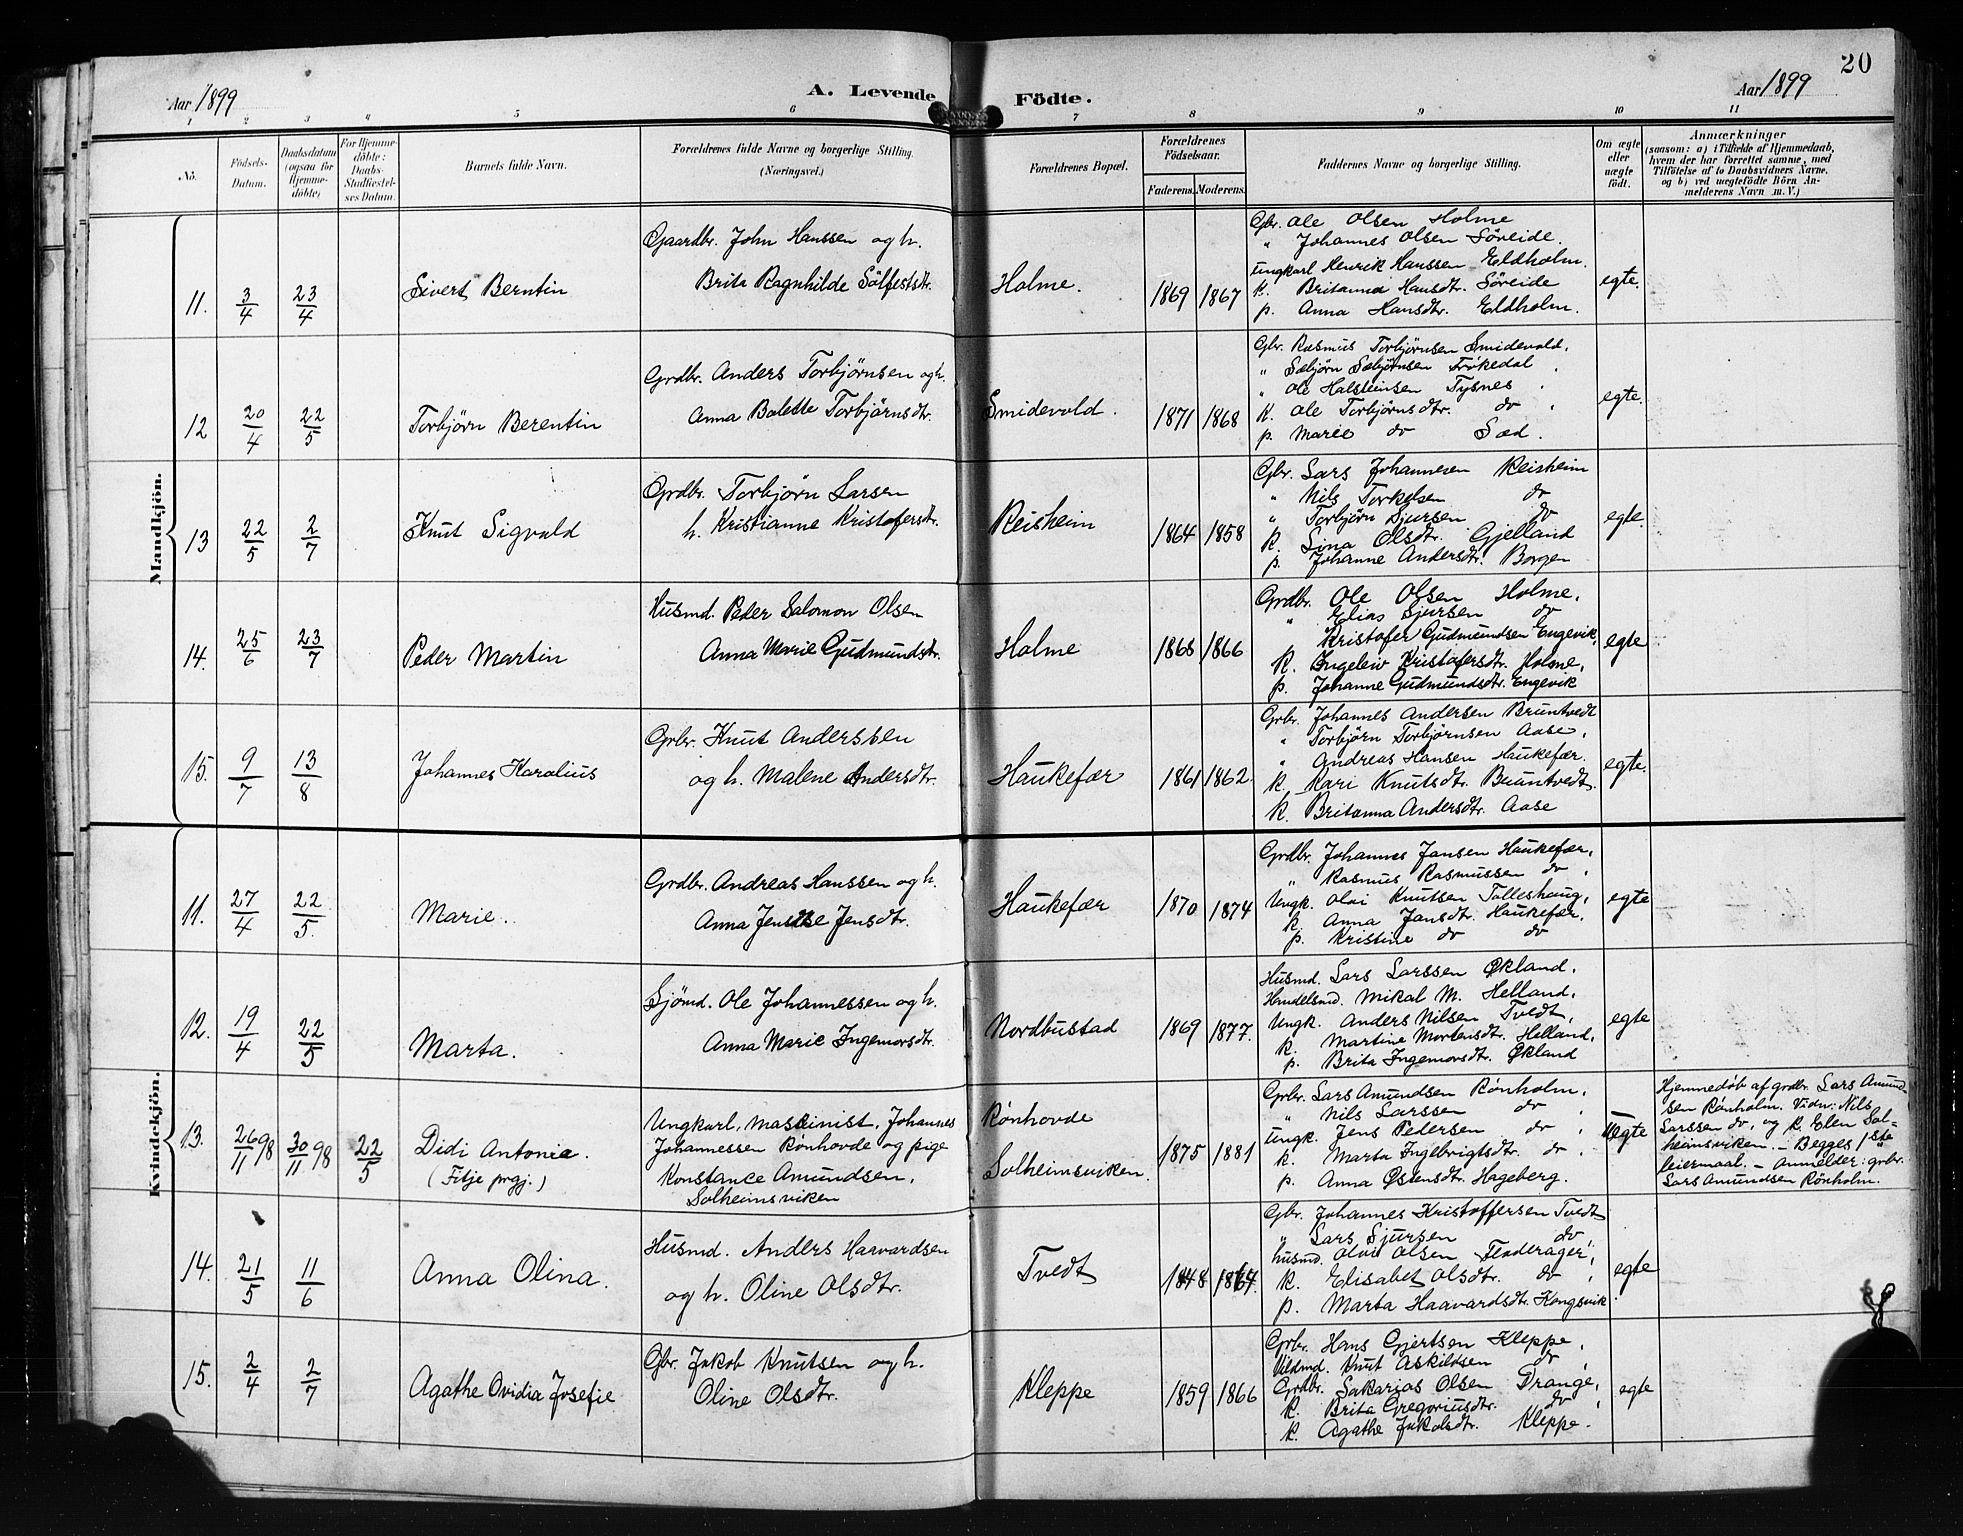 20
Aar 1899
A. Levende Födte.
Aar 1899
1 2 3 4 5 6 7 8 9 10 11
No.
Födsels-
Datum.
Daabsdatum
(ogsaa for
Hjemme-
döbte)
For Hjemme-
döbte:
Daabs-
Stadfæstel-
ses Datum.
Barnets fulde Navn.
Forældrenes fulde Navne og borgerlige Stilling.
(Næringsvei.)
Forældrenes Bopæl.
Forældrenes
Födselsaar.
Faderens. Moderens.
Faddernes Navne og borgerlig Stilling.
Om ægte
eller
uægte
födt.
Anmærkninger
(saasom: a) i Tilfælde af Hjemmedaab,
hvem der har forrettet samme, med
Tilföielse af to Daabsvidners Navne,
og b) ved uægtefödte Börn An-
melderens Navn m. V.)
Mandkjön.
11.
3/4
23/4
Sivert Berntin
Gaardbr. John Hanssen og h.
Brita Ragnhilde Sölfestsdtr.
Holme.
1869
1867
Gbr. Ole Olsen Holme
" Johannes Olsen Söreide.
Ungkarl Henrik Hanssen Eldholm.
k. Britanna Hansdtr. Söreide
p. Anna Hansdtr. Eldholm.
egte.
12
20/4
22/5
Torbjørn Berentin
Grdbr. Anders Torbjørnsen og h.
Anna Bolette Torbjørnsdtr.
Smidevold.
1871
1868
Gbr. Rasmus Torbjørnsen Smidevold.
" Sæbjörn Sæbjörnsen Trökedal.
" Ole Halsteinsen Tysnes.
k. Ole Torbjørnsdtr. do.
p. Marie do Sæd.
egte.
13
22/5
2/7
Knut Sigvald
Grdbr. Torbjørn Larsen
h. Kristianne Kristofersdtr.
Reisheim
1864
1858
Gbr. Lars Johannesen Reisheim
" Nils Torkelsen do
" Torbjørn Sjursen do
k. Lina Olsdtr. Gjelland
p. Johanne Andersdtr. Borgen
egte.
14.
25/6
23/7
Peder Martin
Husmd. Peder Salomon Olsen
Anna Marie Gudmundsdtr.
Holme
1868
1866
Grdbr. Ole Olsen Holme,
" Elias Sjursen do
" Kristofer Gudmundsen Engevik,
k. Ingeleiv Kristofersdtr. Holme,
p. Johanne Gudmundsdtr. Engevik
egte
15.
9/7
13/8
Johannes Karolius
Grbr. Knut Anderssen
og h. Malene Andersdtr.
Haukefær
1861
1862.
Grbr. Johannes Andersen Bruntvedt
" Torbjørn Torbjørnsen Aase,
" Andreas Hansen Haukefær.
k. Kari Knutsdtr. Bruntvedt.
k. Britanna Andersdtr. Aase
egte.
Kvindekjön.
11.
27/4
22/5
Marie.
Grdbr. Andreas Hanssen og h.
Anna Jensdtr.
Haukefær
1870
1874
Grdbr. Johannes Jansen Haukefær,
" Rasmus Rasmussen do,
Ungk. Olai Knutsen Tolleshaug,
k. Anna Jansdtr. Haukefær.
p. Kristine do do
egte
12.
19/4
22/5
Marta.
Sjömd. Ole Johannessen og h.
Anna Marie Ingemorsdtr.
Nordbustad
1869
1877.
Husmd. Lars Larssen Økland,
Handelsmd. Mikal M. Helland,
Ungk. Anders Nilsen Tvedt,
k. Martine Mortensdtr. Helland,
p. Brita Ingemorsdtr. Økland
egte
13.
26/11 98
30/11 98
22/5
Didi Antonie.
(Fitje prgj.)
Ungkarl, maskinist, Johannes
Johannessen Rønhovde og pige
Konstance Amundsen,
Solheimsviken
Rønhovde
Solheimsviken.
1875
1881
Grbr. Lars Amundsen Rønholm,
" Nils Larssen do,
Ungk. Jens Pedersen do,
k. Marta Ingebrigtsdtr. do.
p. Anna Østensdtr. Hageberg.
Uegte
Hjemmedøb af grdbr. Lars Amund-
sen Rønholm. Vidn: Nils
Larssen do, og k. Elen Sol-
heimsviken. - Begges 1ste
leiermaal. - Anmelder: grbr.
Lars Amundsen Rønholm.
14.
21/5
11/6
Anna Olina.
Husmd. Anders Havardsen
og h. Oline Olsdtr.
Tvedt
1848
1864.
Gbr. Johannes Kristoffersen Tvedt
" Lars Sjursen do,
husmd. Olai Olsen Flaterager,
k. Elisabet Olsdtr. do,
p. Marta Haavardsdtr. Kongsvik
egte
15.
2/4
2/7
Agathe Ovidia Josefie
Gbr. Jakob Knutsen og h.
Oline Olsdtr.
Kleppe
1859
1866
Grbr. Hans Gjertsen Kleppe,
Knut Askildsen do,
Grdbr. Sakarias Olsen Drange,
k. Brita Gregoriusdtr. do,
k. Agathe Jakobsdtr. Kleppe.
egte